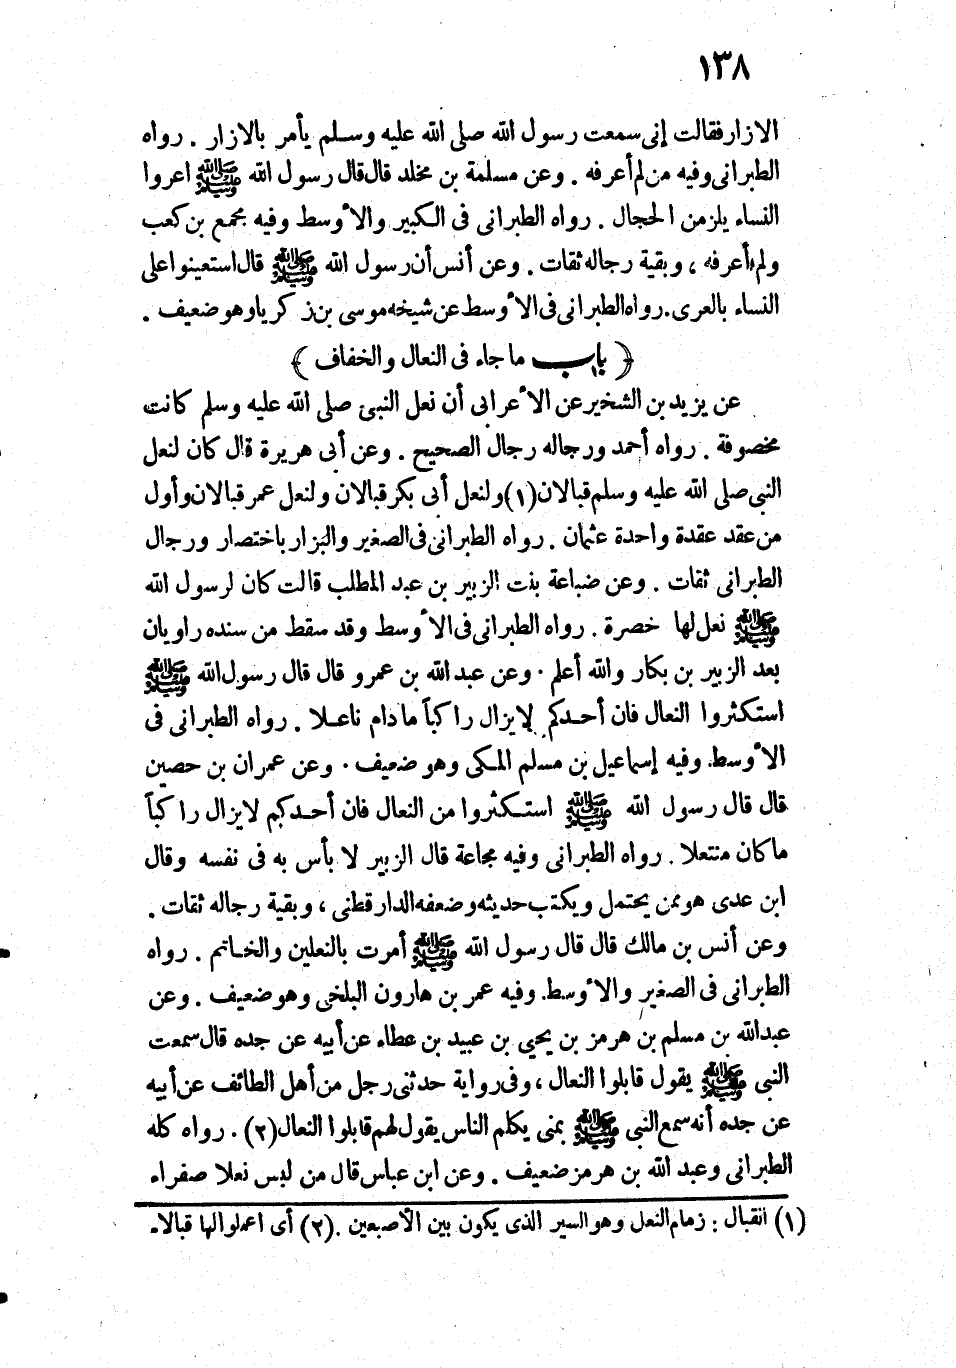 ١٣٨
الازار فقالت إنى سمعت رسول الله صلى الله عليه وسلم يأمر بالازار . رواه
الطبرانى وفيه من لم أعرفه . وعن مسلمة بن مخلد قال قال رسول الله ﷺ اعروا
النساء يلزمن الحجال . رواه الطبرانى فى الكبير والأوسط وفيه مجمع بن كعب
ولم أعرفه ، وبقية رجاله ثقات . وعن أنس أن رسول الله ﷺ قال استعينوا على
النساء بالعرى . رواه الطبرانى فى الأوسط عن شيخه موسى بن زكريا وهو ضعيف .
﴿ باب ما جاء فى النعال والخفاف ﴾
عن يزيد بن الشخير عن الأعرابى أن نعل النبى صلى الله عليه وسلم كانت
مخصوفة . رواه أحمد ورجاله رجال الصحيح . وعن أبى هريرة قال كان لنعل
النبى صلى الله عليه وسلم قبالان (١) ولنعل أبى بكر قبالان ولنعل عمر قبالان وأول
من عقد عقدة واحدة عثمان . رواه الطبرانى فى الصغير والبزار باختصار ورجال
الطبرانى ثقات . وعن ضباعة بنت الزبير بن عبد المطلب قالت كان لرسول الله
ﷺ نعل لها خصرة . رواه الطبرانى فى الأوسط وقد سقط من سنده راويان
بعد الزبير بن بكار والله أعلم . وعن عبد الله بن عمرو قال قال رسول الله ﷺ
استكثروا النعال فان أحدكم لايزال راكباً مادام ناعلا . رواه الطبرانى فى
الأوسط وفيه إسماعيل بن مسلم المكى وهو ضعيف . وعن عمران بن حصين
قال قال رسول الله ﷺ استكثروا من النعال فان أحدكم لايزال راكباً
ماكان منتعلا . رواه الطبرانى وفيه مجاعة قال الزبير لا بأس به فى نفسه وقال
ابن عدى هو ممن يحتمل ويكتب حديثه وضعفه الدارقطنى ، وبقية رجاله ثقات .
وعن أنس بن مالك قال قال رسول الله ﷺ أمرت بالنعلين والخاتم . رواه
الطبرانى فى الصغير والأوسط وفيه عمر بن هارون البلخى وهو ضعيف . وعن
عبدالله بن مسلم بن هرمز بن يحيي بن عبيد بن عطاء عن أبيه عن جده قال سمعت
النبى ﷺ يقول قابلوا النعال ، وفى رواية حدثنى رجل من أهل الطائف عن أبيه
عن جده أنه سمع النبى ﷺ بمنى يكلم الناس يقول لهم قابلوا النعال (٢) . رواه كله
الطبرانى وعبد الله بن هرمز ضعيف . وعن ابن عباس قال من لبس نعلا صفراء
(١) القبال : زمام النعل وهو السير الذى يكون بين الأصبعين . (٢) أى اعملوا لها قبالا .